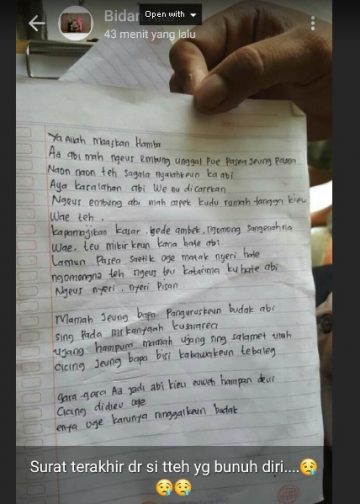 Bidan
Open with
43 menit yang lalu
Ya Allah maafkan Hamba
Aa abi mah ngeus embung unggal Poe Pasea jeung Pasea
Naon naon teh sagala nyalahkeun ka abi
Aya kasalahan abi We nu dicarekan
Ngeus embung abi mah capek kudu rumah tangga kieu
Wae teh.
kapamajikan kasar, gede ambek, ngomong sangeunahna
Wae, teu mikirkeun kana hate abi.
Lamun Pasea saetik oge matak nyeri hate
ngomongna teh ngeus teu katarima ku hate abi
Ngeus nyeri, nyeri Pisan
Mamah jeung bapa Panguruskeun budak abi
sing Pada
ujang hampura mamah ujang sing salamet
cicing jeung bapa bisi kabawakeun
gara-gara Aa jadi abi kieu euweuh harapan deui
Cicing didieu oge
enya oge karunya ninggalkeun budak
Surat terakhir dr si tteh yg bunuh diri....😢
😢😢